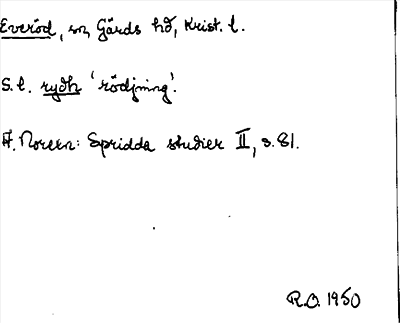 Everöd, sn, Gärds hd, Krist. l.
S.l. rydh 'rödjning'.
A. Noreen: Spridda studier II, s. 81.
R.O. 1950